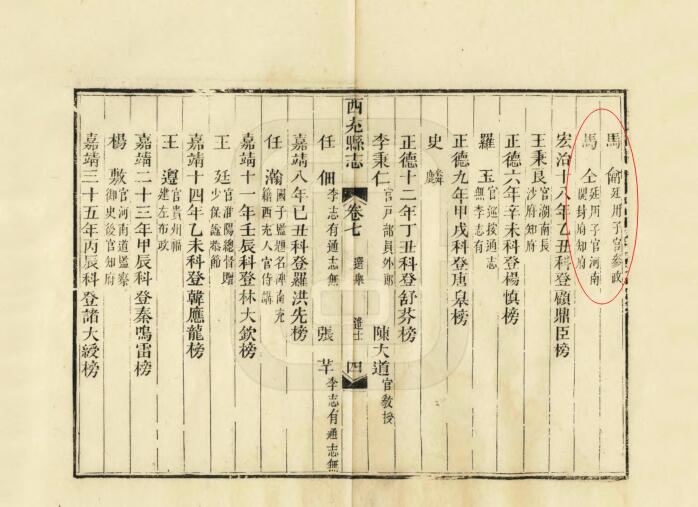 馬 廷用子官參政
馬 仝 廷用子官河南開封府知府
宏治十八年乙丑科登顧鼎臣榜
王秉良 官湖南長沙府知府
正德六年辛未科登楊慎榜
羅 玉 官巡按通志無李志有
正德九年甲戌科登唐皐榜
史 麟
正德十二年丁丑科登舒芬榜
李秉仁 官戸部員外郎 陳大道 官教授
西充縣志 卷七 選舉 進士 四
任 佃 李志有通志無 張 芊 李志有通志無
嘉靖八年己丑科登羅洪先榜
任 瀚 國子監題名碑南充籍西充人官侍講
嘉靖十一年壬辰科登林大欽榜
王 廷 官淮陽總督贈少保諡恭節
嘉靖十四年乙未科登韓應龍榜
王 遵 官貴州福建左布政
嘉靖二十三年甲辰科登秦鳴雷榜
楊 敷 官河南道監察御史後官知府
嘉靖三十五年丙辰科登諸大綬榜